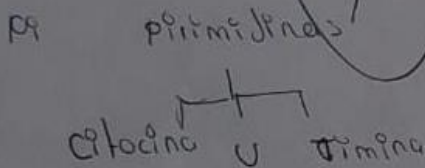 Pi pirimidinas
Citocina U Timina